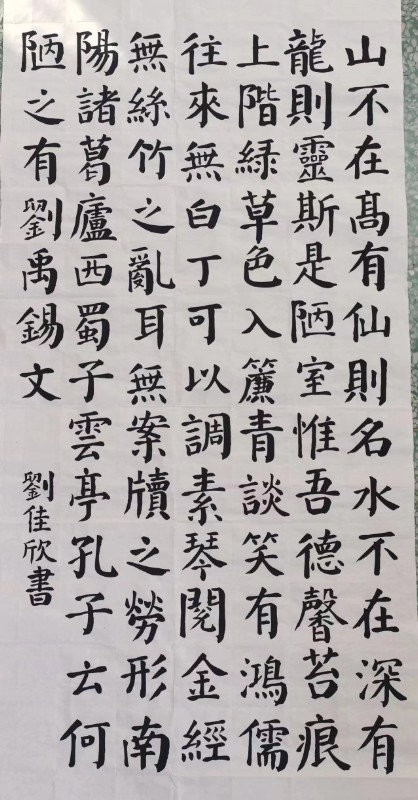 山不在髙有仙則名水不在深有
龍則靈斯是陋室惟吾德馨苔痕
上階緑草色入簾青談笑有鴻儒
往來無白丁可以調素琴閱金經
無絲竹之亂耳無案牘之勞形南
陽諸葛廬西蜀子雲亭孔子云何
陋之有劉禹錫文 劉佳欣書